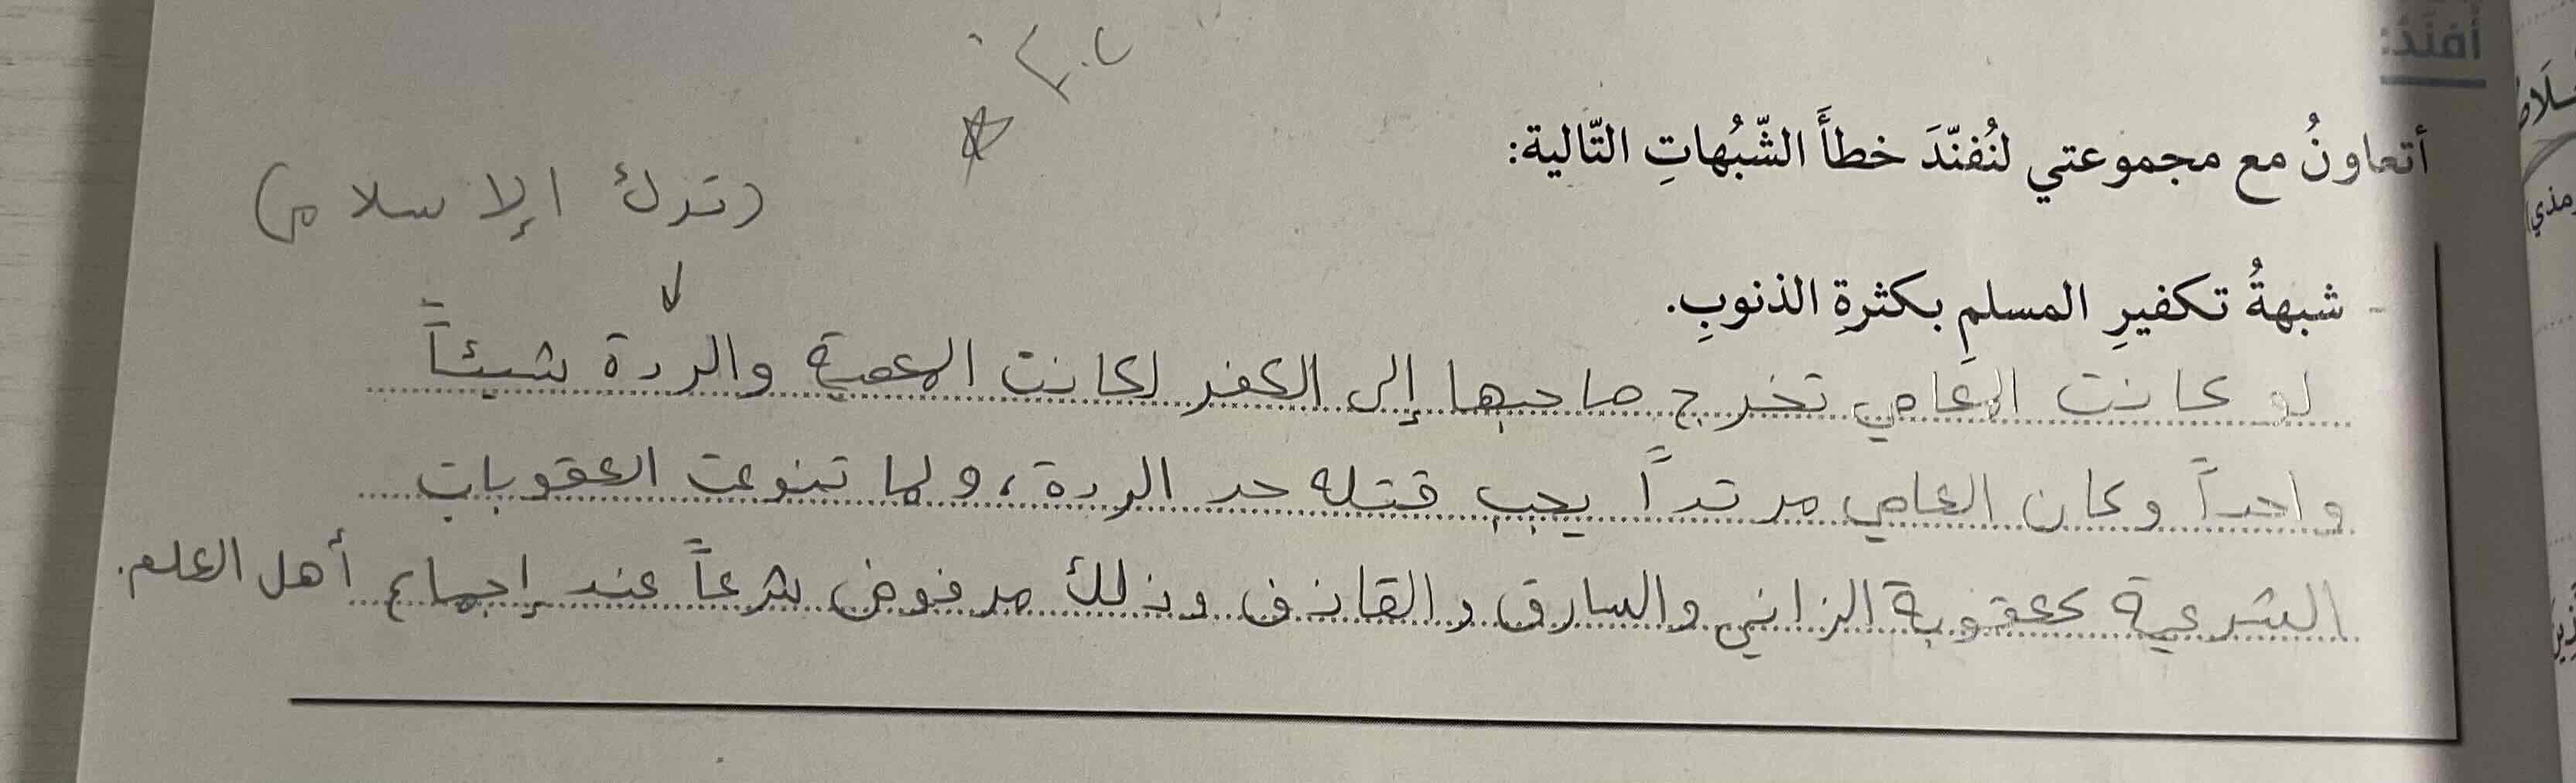 أفنّدُ:
أتعاونُ مع مجموعتي لنُفنّدَ خطأَ الشّبُهاتِ التّالية:
(ترك الإسلام)
- شبهةُ تكفيرِ المسلمِ بكثرةِ الذنوبِ.
لو كانت المعاصي تخرج صاحبها إلى الكفر لكانت المعصية والردة شيئاً
واحداً وكان العاصي مرتداً يجب قتله حد الردة، ولما تنوعت العقوبات
الشرعية كعقوبة الزاني والسارق والقاذف وذلك مرفوض شرعاً عند إجماع أهل العلم.